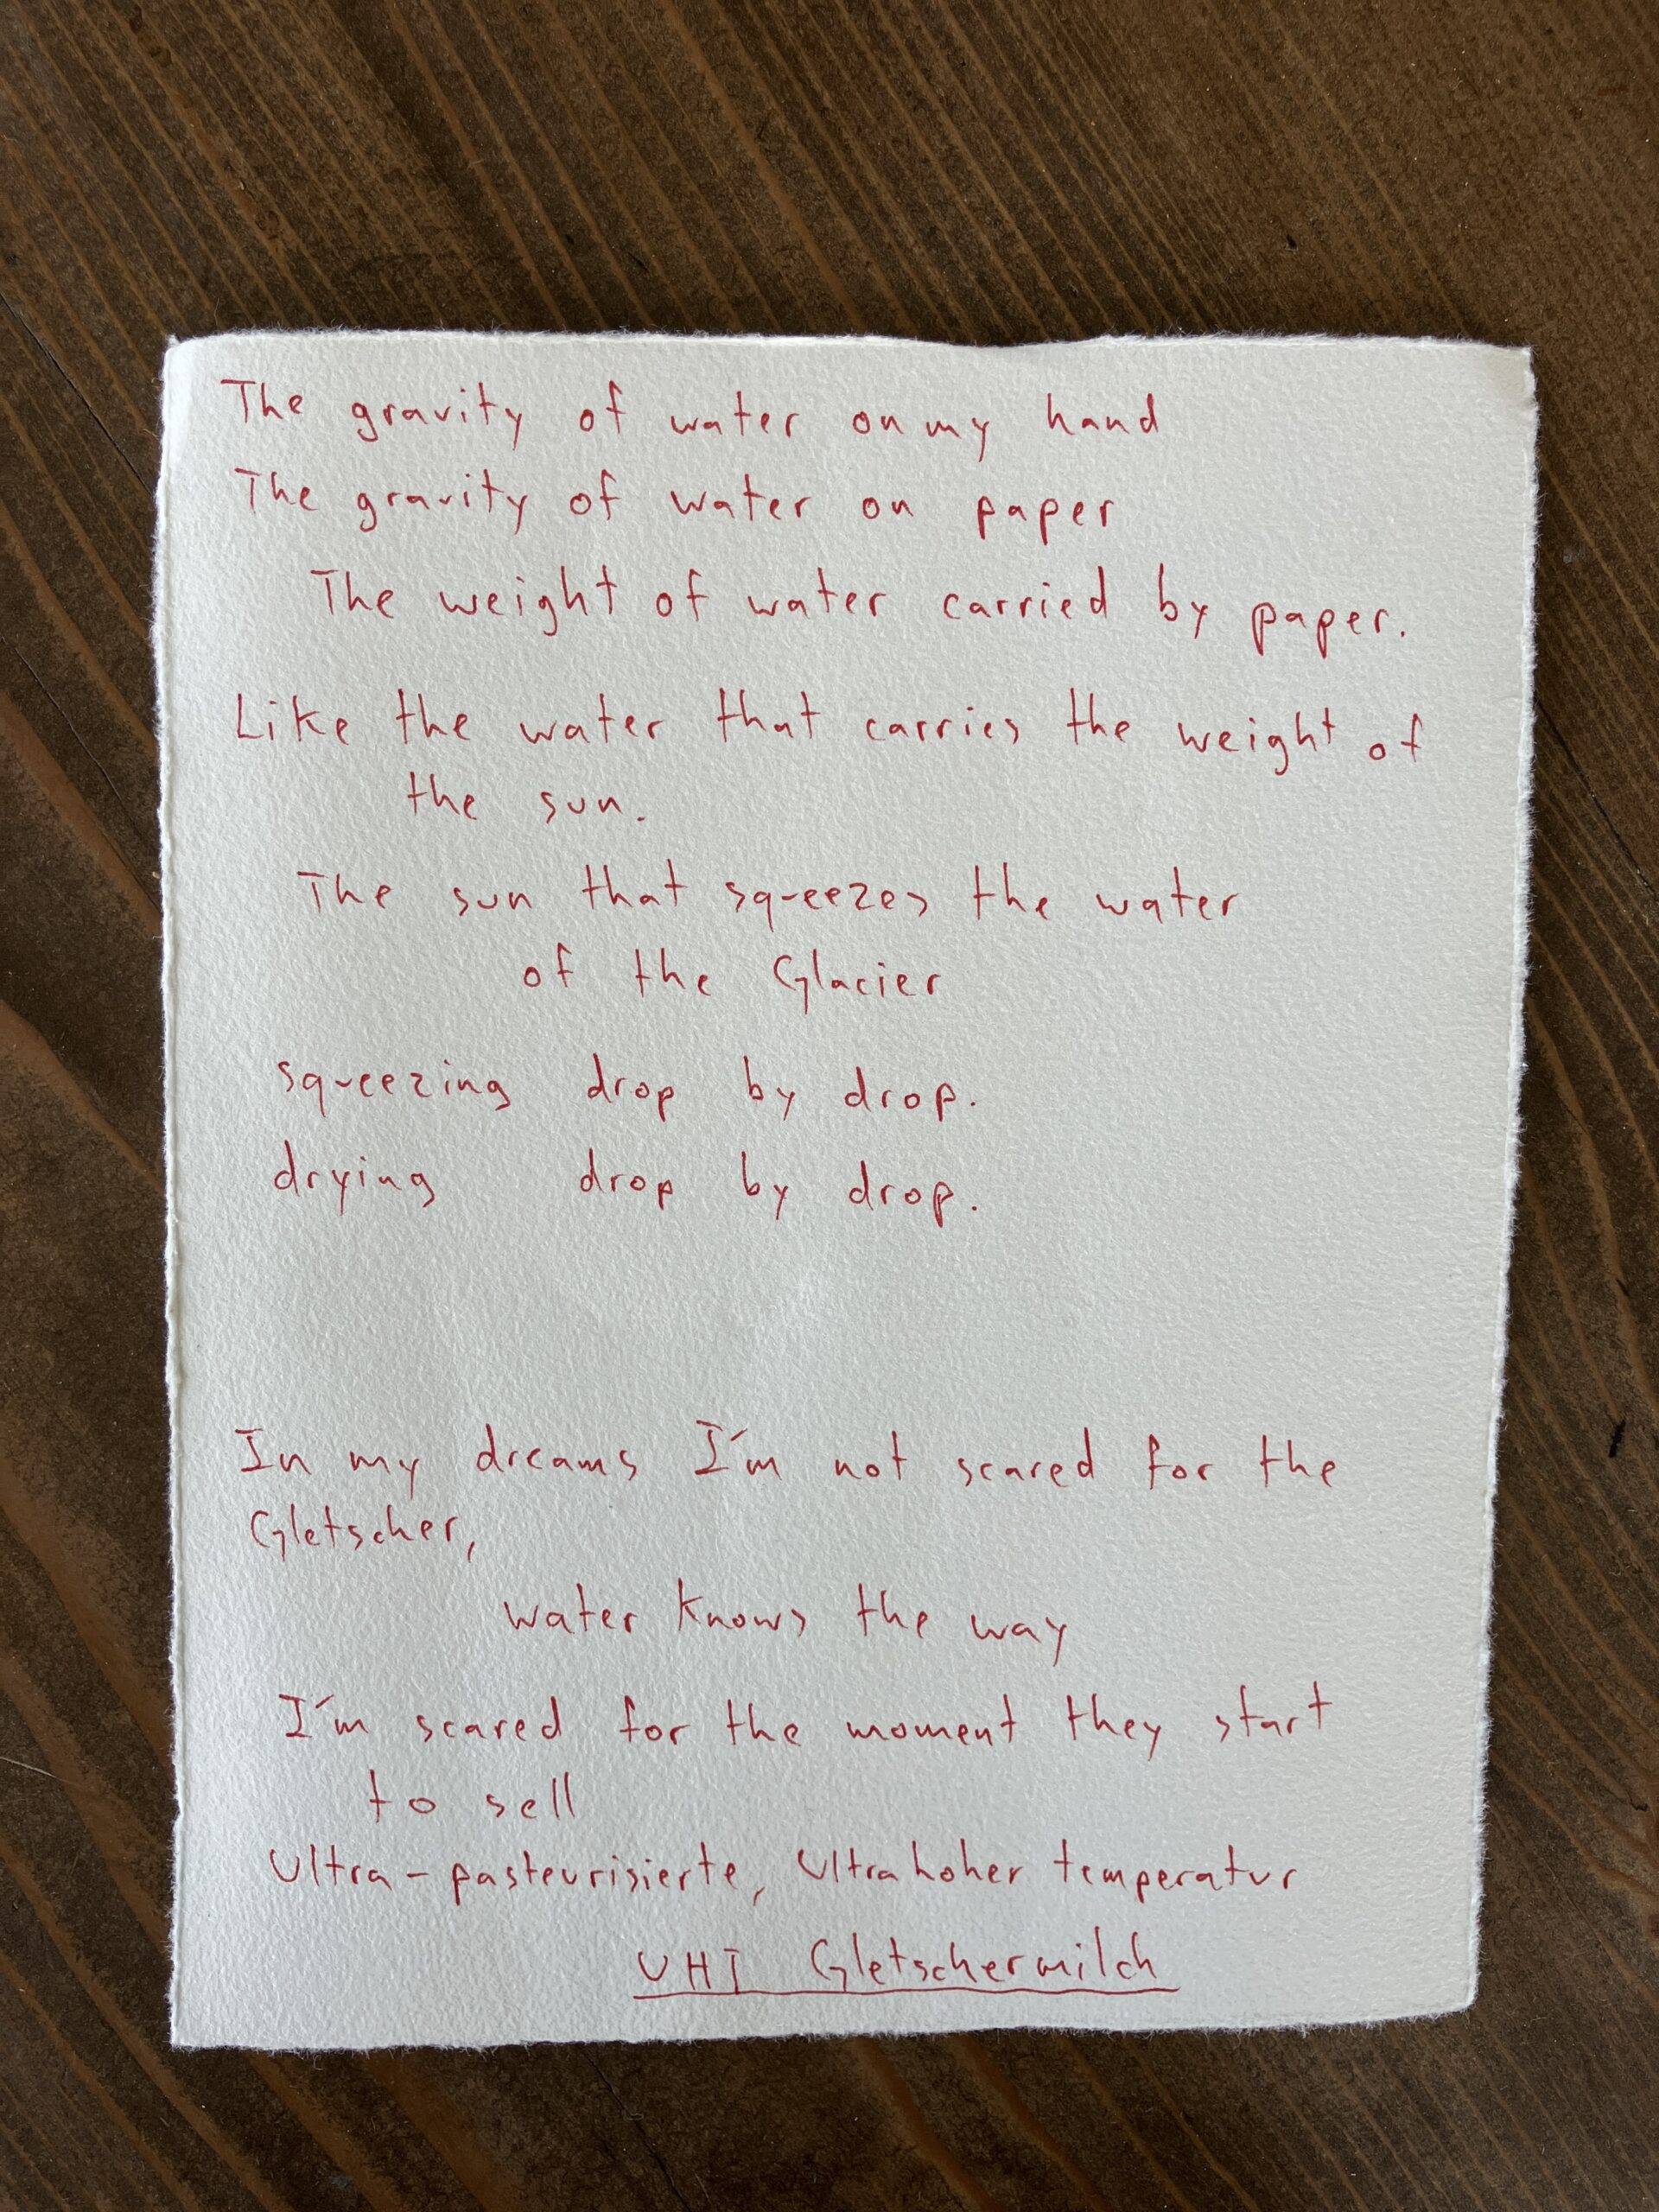 The gravity of water on my hand
The gravity of water on paper
The weight of water carried by paper.
Like the water that carries the weight of
the sun.
The sun that squeezes the water
of the Glacier
squeezing drop by drop.
drying drop by drop.
In my dreams I´m not scared for the
Gletscher,
water knows the way
I´m scared for the moment they start
to sell
Ultra-pasteurisierte, Ultrahoher temperatur
UHT Gletschermilch